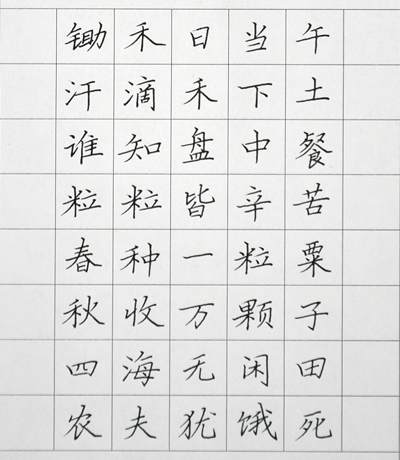 锄禾日当午
汗滴禾下土
谁知盘中餐
粒粒皆辛苦
春种一粒粟
秋收万颗子
四海无闲田
农夫犹饿死